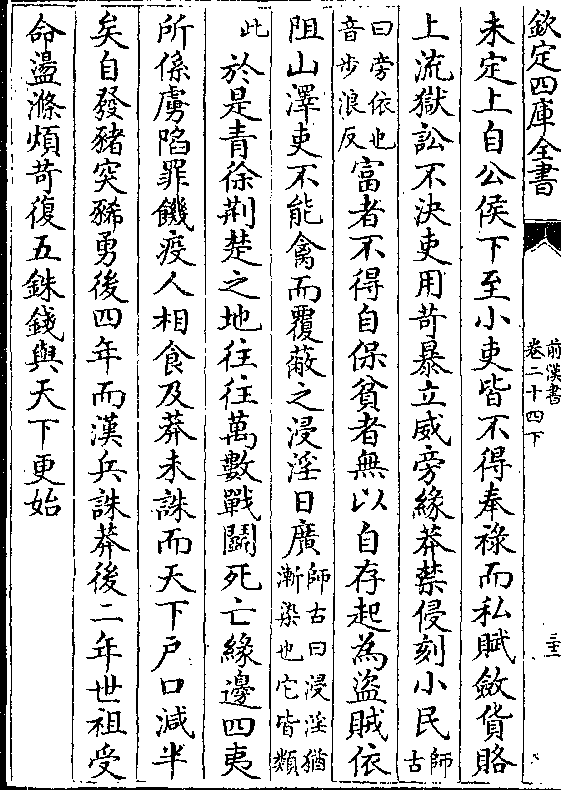 欽定四庫全書
前漢書
卷二十四下
三十三
未定上自公侯下至小吏皆不得奉祿而私賦斂貨賂
上流獄訟不決吏用苛暴立威旁緣莽禁侵刻小民師古
曰旁依也音步浪反富者不得自保貧者無以自存起為盜賊依
阻山澤吏不能禽而覆蔽之浸淫日廣師古曰浸淫猶漸染也它皆類
此於是青徐荆楚之地往往萬數戰鬭死亡緣邊四夷
所係虜陷罪饑疫人相食及莽未誅而天下戶口減半
矣自發豬突豨勇後四年而漢兵誅莽後二年世祖受
命盪滌煩苛復五銖錢與天下更始